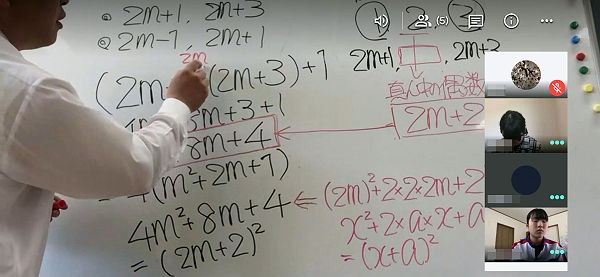 ① 2m+1, 2m+3
② 2m-1, 2m+1
2m
① 2 ③
2m+1, □, 2m+3
(2m+ (2m+3)+1
真ん中の偶数
m+3+1
8m+4
2m+2
4(m²+2m+1)
4m²+8m+4 ⇐ (2m)²+2×2×2m+2
=(2m+2)²
x²+2×a×x+a
=(x+a)²
(5)